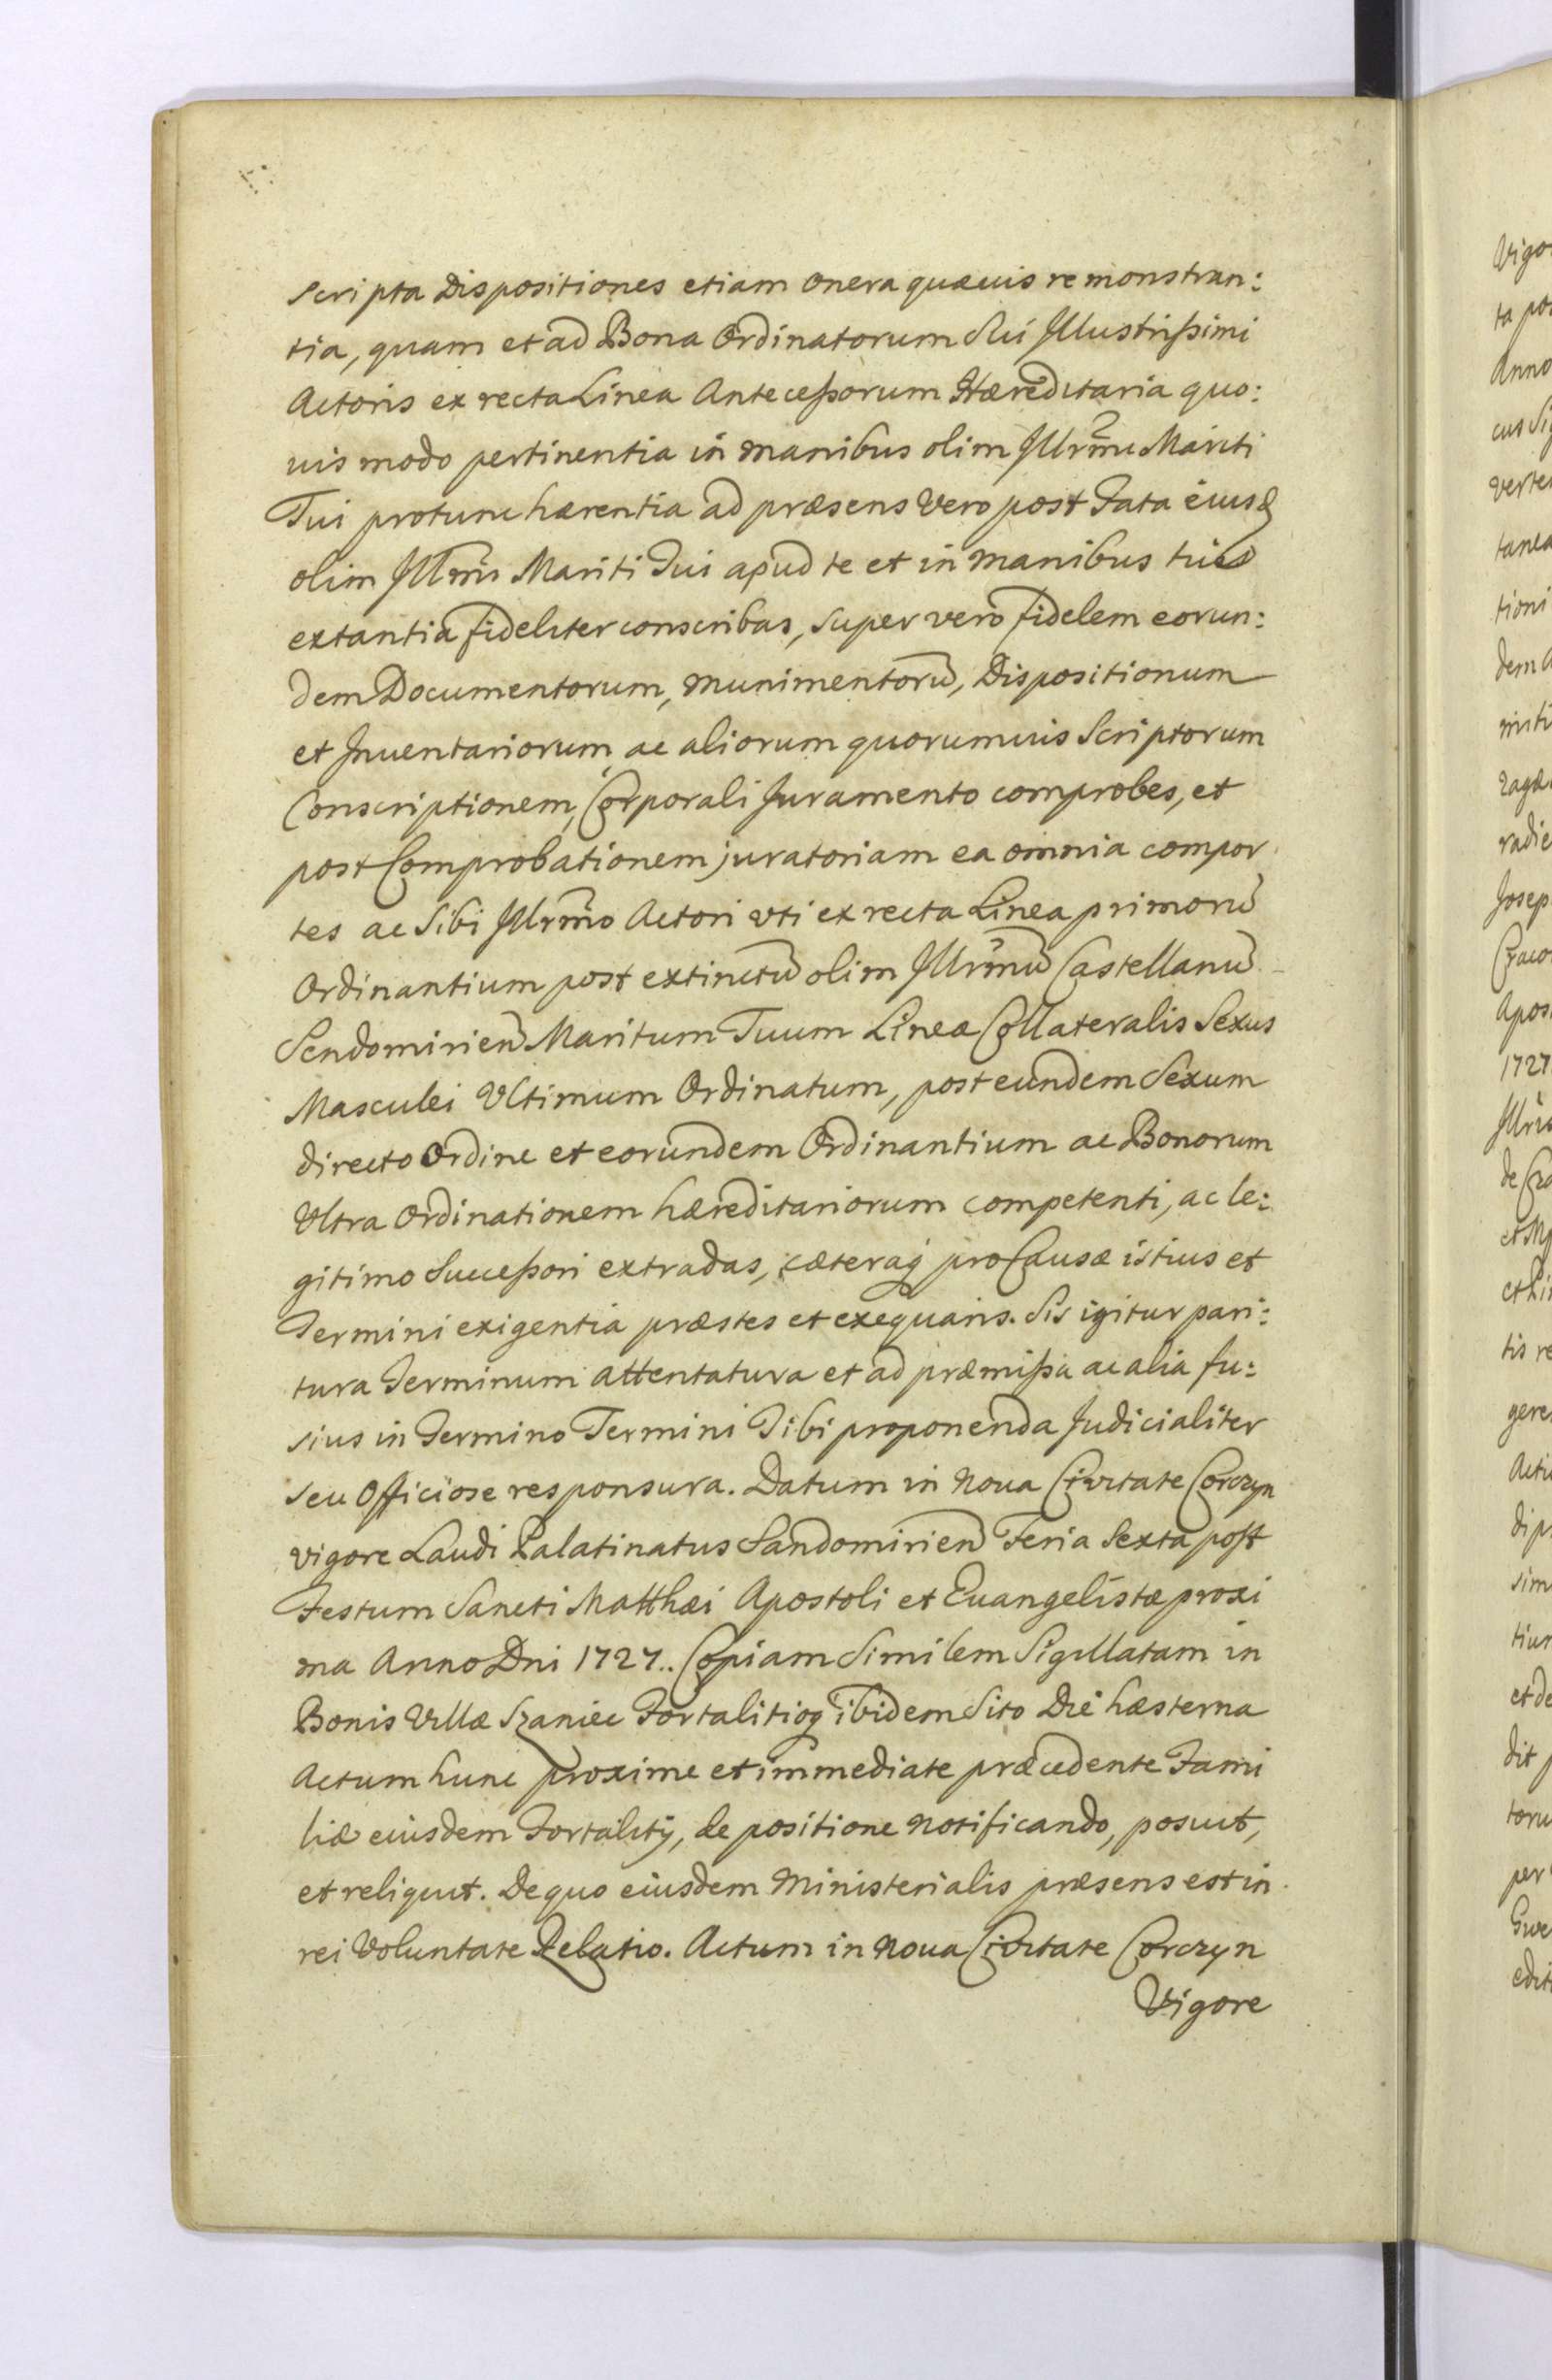 scripta Dispositiones etiam onera quævis remonstran:
tia, quam et ad Bona Ordinatorum Sui Illustrissimi
Actoris ex recta Linea Antecessorum Hæreditaria quo:
vis modo pertinentia in manibus olim Illrm̃i Mariti
Tui protunc hærentia ad præsens vero post Fata eiusd
olim Illrm̃i Mariti Tui apud te et in manibus tuis
extantia fideliter conscribas, super vero fidelem eorun:
dem Documentorum, munimentorū, Dispositionum
et Inuentariorum ac aliorum quorumuis Scriptorum
Conscriptionem, Corporali Juramento comprobes, et
post Comprobationem juratoriam ea omnia compor
tes ac Sibi Illrm̃o Actori vti ex recta Linea primorū
Ordinantium post extinctū olim Illrm̃ū Castellanū
Sendomirień Maritum Tuum Lineæ Collateralis Sexus
Masculei Vltimum Ordinatum, post eundem Sexum
directo Ordine et eorundem Ordinantium ac Bonorum
Vltra Ordinationem hæreditariorum competenti, ac le:
gitimo Successori extradas, cæteraq́ pro Causæ istius et
Termini exigentia præstes et exequaris. Sis igitur pari:
tura Terminum attentatura et ad præmissa ac alia fu:
sius in Termino Termini Tibi proponenda Judicialiter
seu Officiose responsura. Datum in Noua Civitate Corczyn
vigore Laudi Palatinatus Sandomirień Feria Sexta post
Festum Sancti Matthæi Apostoli et Euangelistæ proxi
ma Anno Dni 1727.. Copiam Similem Sigillatam in
Bonis Villæ Szaniec Fortalitioq́ ibidem Sito Die hæsterna
Actum hunc proxime et immediate præcedente Fami
liæ eiusdem Fortalitÿ, de positione notificando, posuit,
et reliquit. De quo eiusdem Ministerialis præsens est in
rei Voluntate Relatio. Actum in Noua Civitate Corczyn
Vigore